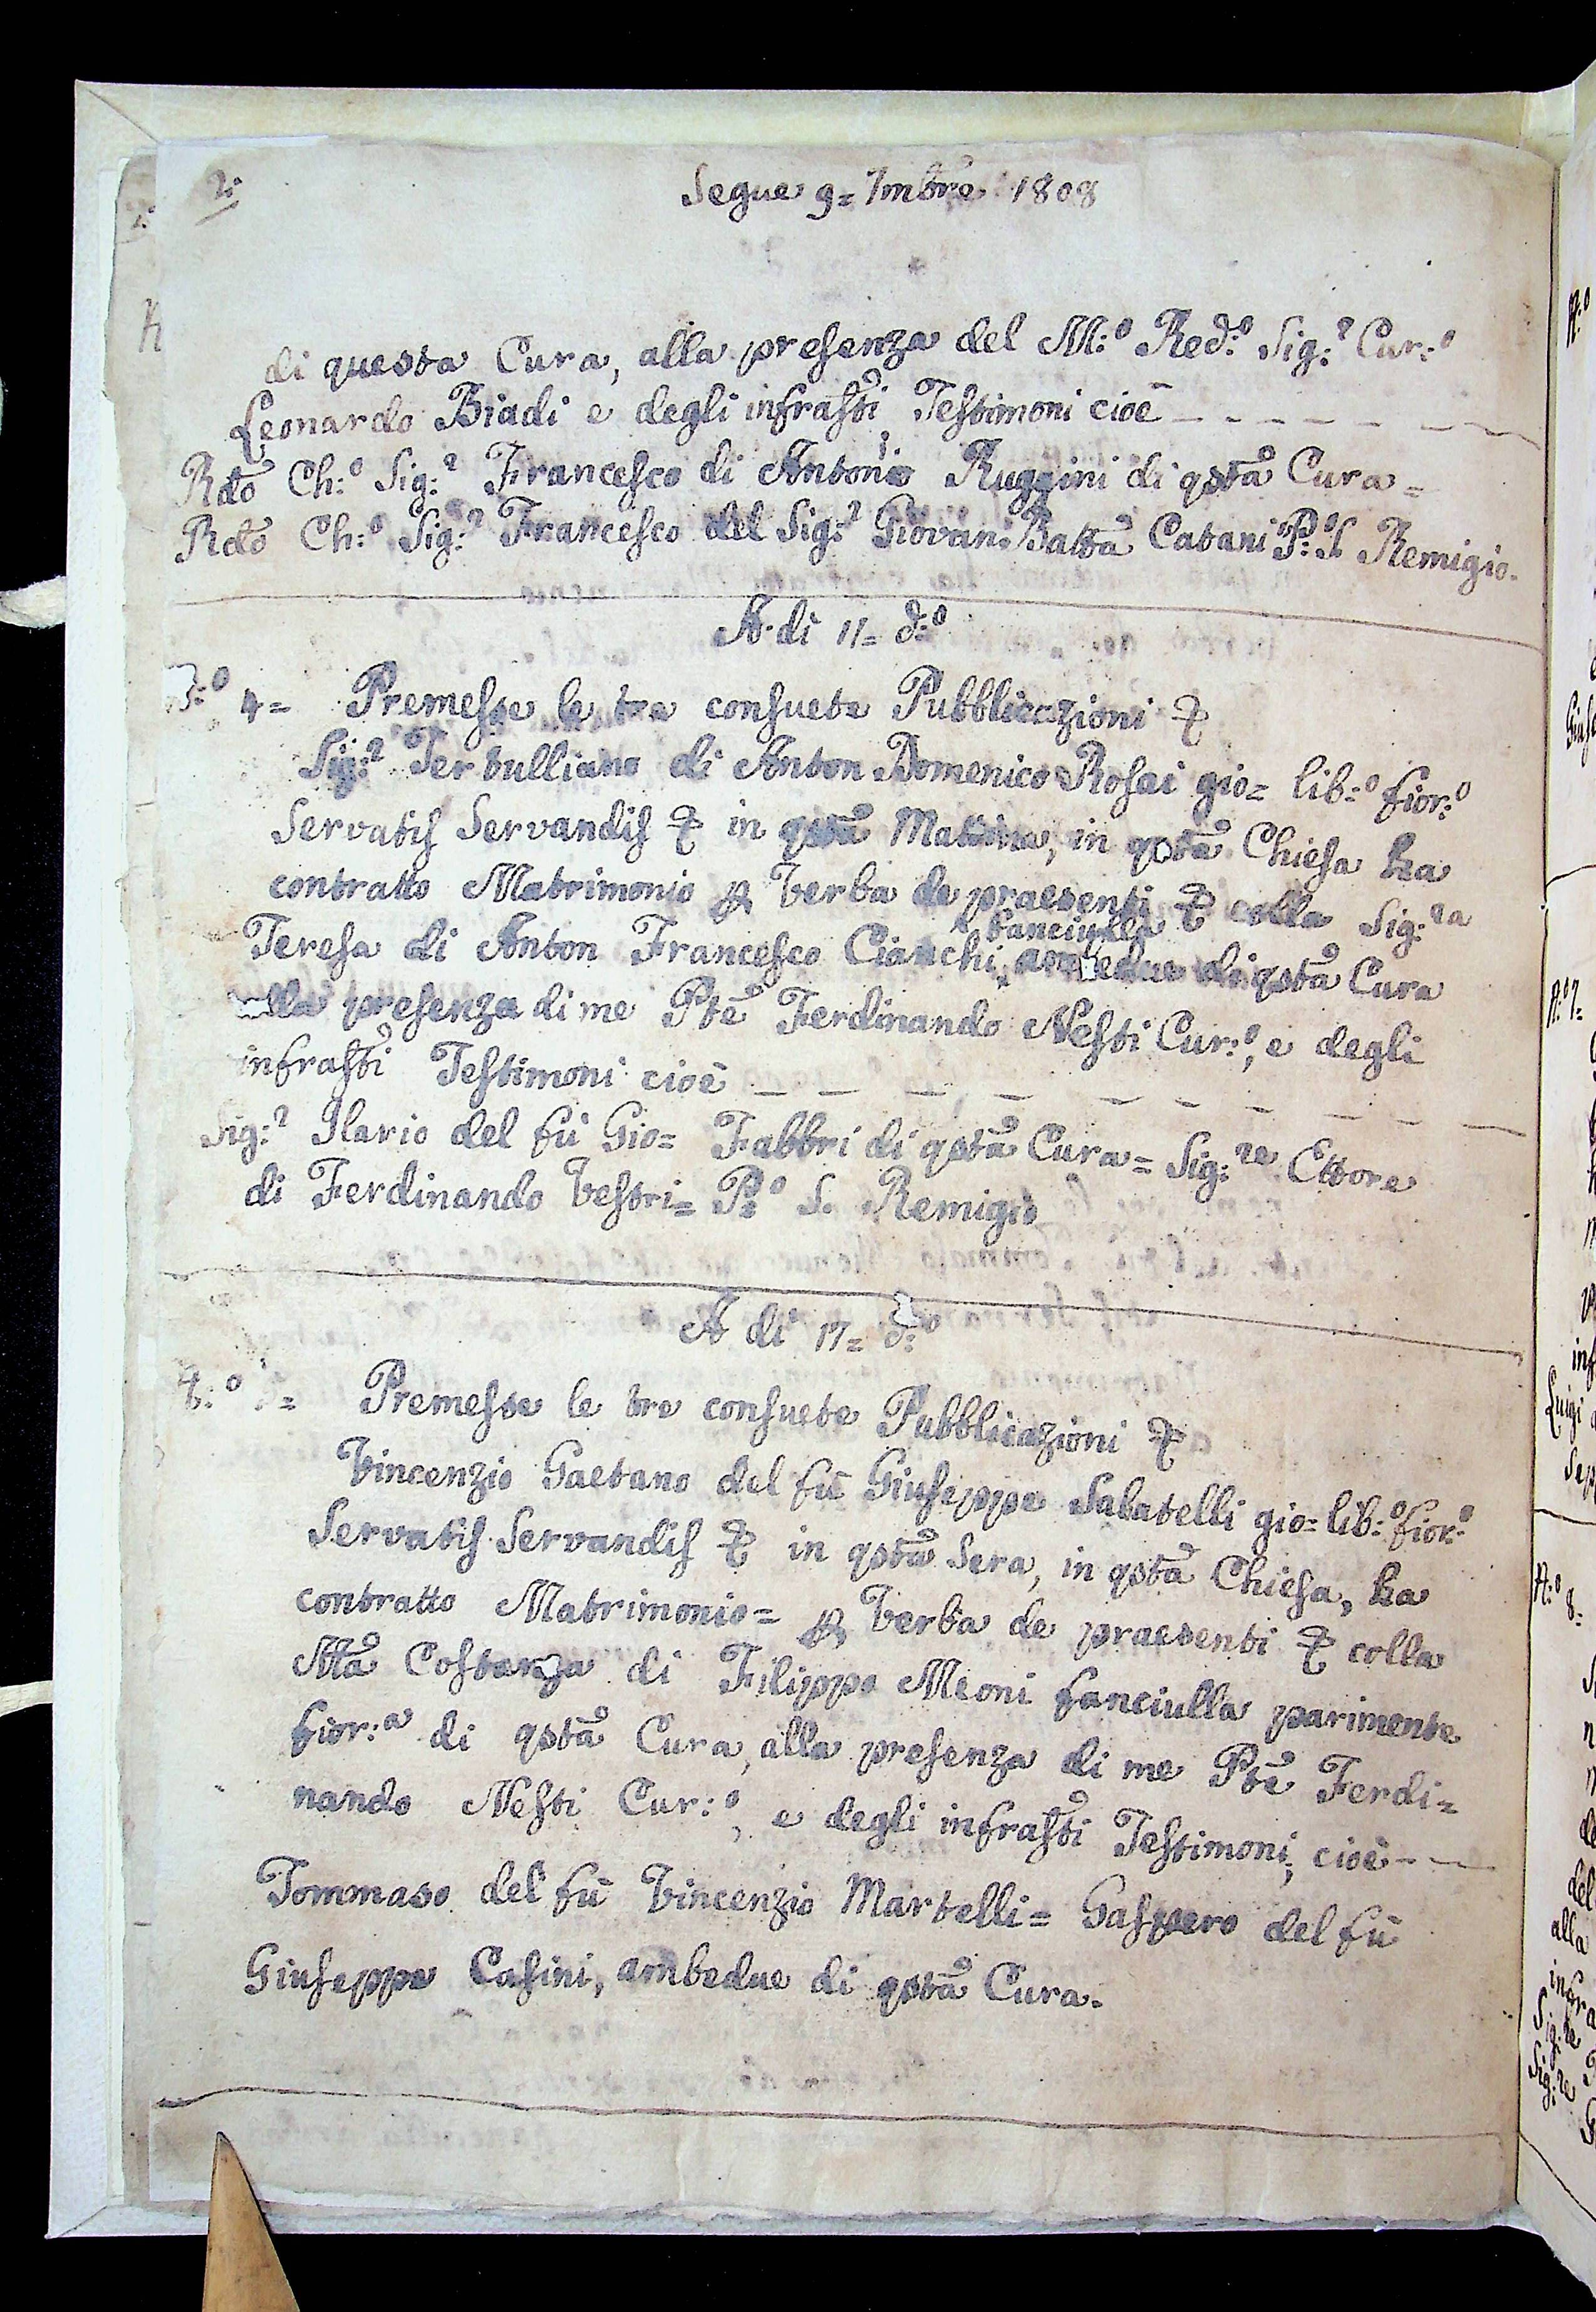 2:
Segue 9= 7mbre 1808
di questa Cura, alla presenza del M:o Red:o Sig:r Cur:o
Leonardo Biadi e degli infrasti Testimoni cioè
Rdo Ch:o Sig:r Francesco di Antonio Ruggini di qsta Cura=
Rdo Ch:o Sig:r Francesco del Sig:r Giovan: Batta Catani P:o S. Remigio.
A di 11= d:o
4= Premesse le tre consuete Pubblicazioni &
Sig:r Tertulliano di Anton Domenico Rosai gio= lib:o fior:o
Servatis Servandis & in qsta Mattina, in qsta Chiesa ha
contratto Matrimonio p Verba de praesenti & colla Sig:ra
fanciulla
Teresa di Anton Francesco Cianchi, ambedue di qsta Cura
alla presenza di me Pte Ferdinando Nesti Cur:o, e degli
infrasti Testimoni cioè
Sig:r Ilario del fù Gio= Fabbri di qsta Cura= Sig:re Ettore
di Ferdinando Vestri= P:o S. Remigio
A di 17= d:o
Premesse le tre consuete Pubblicazioni &
Vincenzio Gaetano del fù Giuseppe Salatelli gio= lib:o fior:o
Servatis Servandis & in qsta Sera, in qsta Chiesa, ha
contratto Matrimonio= p Verba de praesenti & colla
Ma Costanza di Filippo Meoni fanciulla parimente
fior:a di qsta Cura, alla presenza di me Pte Ferdi=
nando Nesti Cur:o, e degli infrasti Testimoni, cioè
Tommaso del fù Vincenzio Martelli= Gaspero del fù
Giuseppe Casini, ambedue di qsta Cura.